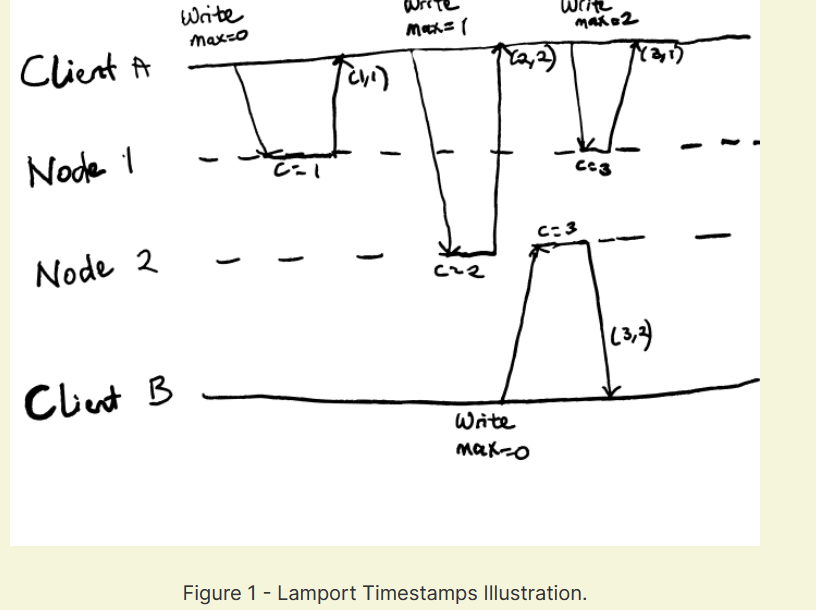 Write
max=0
Write
max=1
Write
max=2
Client A
(1,1)
(2,2)
(3,1)
Node 1
C=1
C=3
Node 2
C=2
C=3
(3,2)
Client B
Write
max=0
Figure 1 - Lamport Timestamps Illustration.